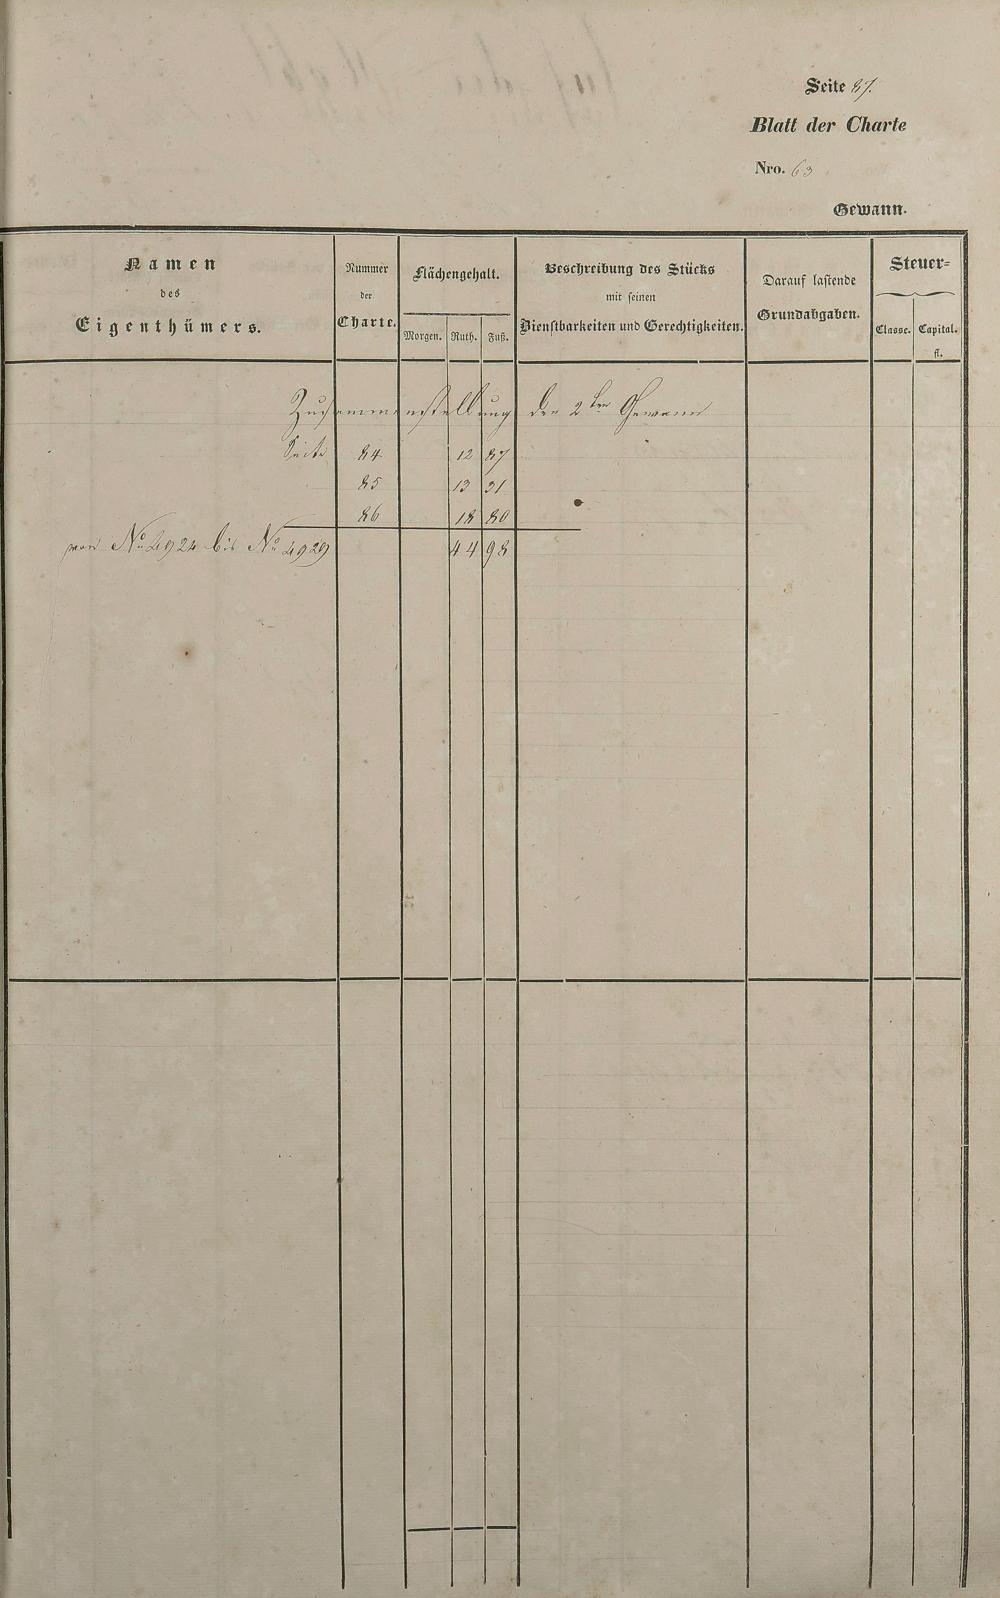 Seite 87.
Blatt der Charte
Nro. 63
Gewann.
Namen des Eigenthümers.
Nummer der Charte.
Flächengehalt.
Morgen. Ruth. Fuß.
Beschreibung des Stücks mit seinen Dienstbarkeiten und Gerechtigkeiten.
Darauf lastende Grundabgaben.
Steuer=
Classe. Capital. fl.
Zusammenstellung der 2ten Gewann
Seite 84 12 87
85 13 31
86 18 80
von No 4924 bis No 4929 44 98